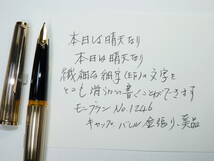 本日は晴天なり
本日は晴天なり
繊細な細字(EF)の文字を
とても滑らかに書くことができます
モンブラン No.1246
キャップ バレル 金張り、美品